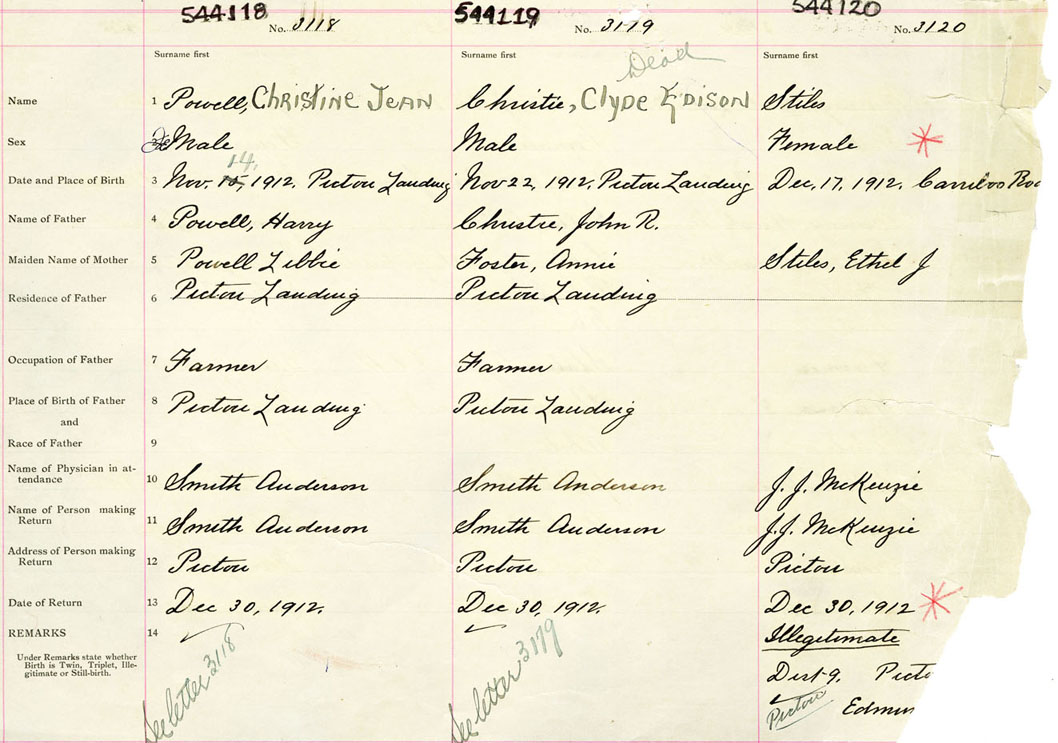 544118 544119 544120
No. 3118 No. 3119 No. 3120
Surname first Surname first Surname first
Dead
Name 1 Powell, Christine Jean Christie, Clyde Edison Stiles
Sex 2 FeMale Male Female
14,
Date and Place of Birth 3 Nov. 15, 1912, Pictou Landing Nov 22, 1912, Pictou Landing Dec, 17, 1912,
Name of Father 4 Powell, Harry Christie, John R.
Maiden Name of Mother 5 Powell Libbie Foster, Annie Stiles, Ethel J
Residence of Father 6 Pictou Landing Pictou Landing
Occupation of Father 7 Farmer Farmer
Place of Birth of Father 8 Pictou Landing Pictou Landing
and
Race of Father 9
Name of Physician in at-
tendance 10 Smith Anderson Smith Anderson J. J. McKenzie
Name of Person making
Return 11 Smith Anderson Smith Anderson J. J. McKenzie
Address of Person making
Return 12 Pictou Pictou Pictou
Date of Return 13 Dec 30, 1912, Dec 30, 1912, Dec 30, 1912
REMARKS 14 Illegitimate
Under Remarks state whether
Birth is Twin, Triplet, Ille-
gitimate or Still-birth.
See letter 3118 See letter 3119 Dist 9, Picto
Pictou Edmun